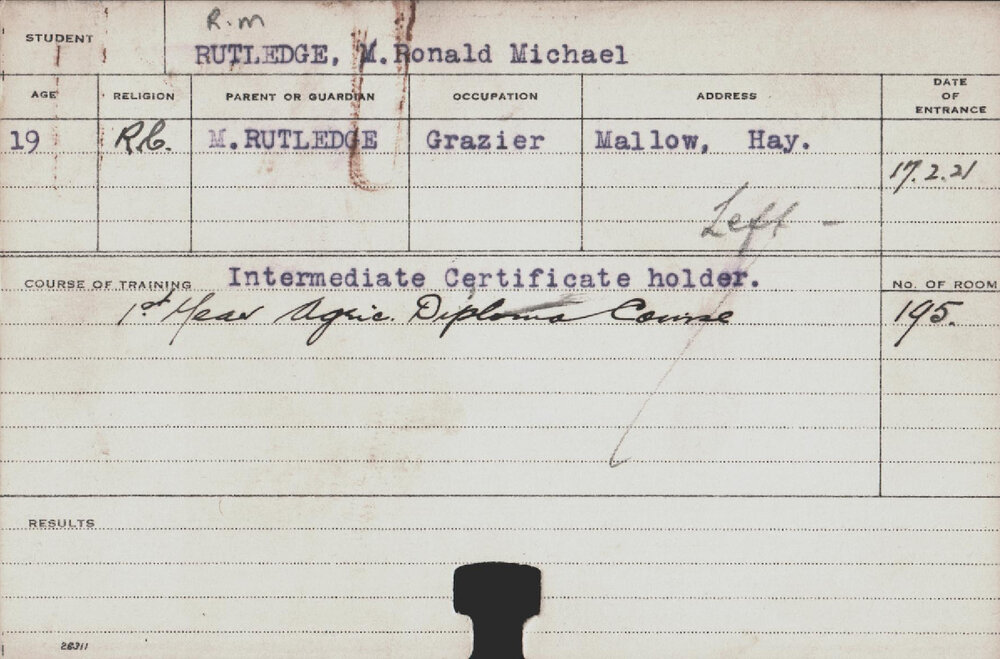 R.m
STUDENT
RUTLEDGE, M.Ronald Michael
AGE RELIGION PARENT OR GUARDIAN OCCUPATION ADDRESS DATE OF ENTRANCE
19 R.C. M.RUTLEDGE Grazier Mallow, Hay.
17.2.21
Left -
COURSE OF TRAINING Intermediate Certificate holder. NO. OF ROOM
1st Year Agric. Diploma Course 195.
RESULTS
28311